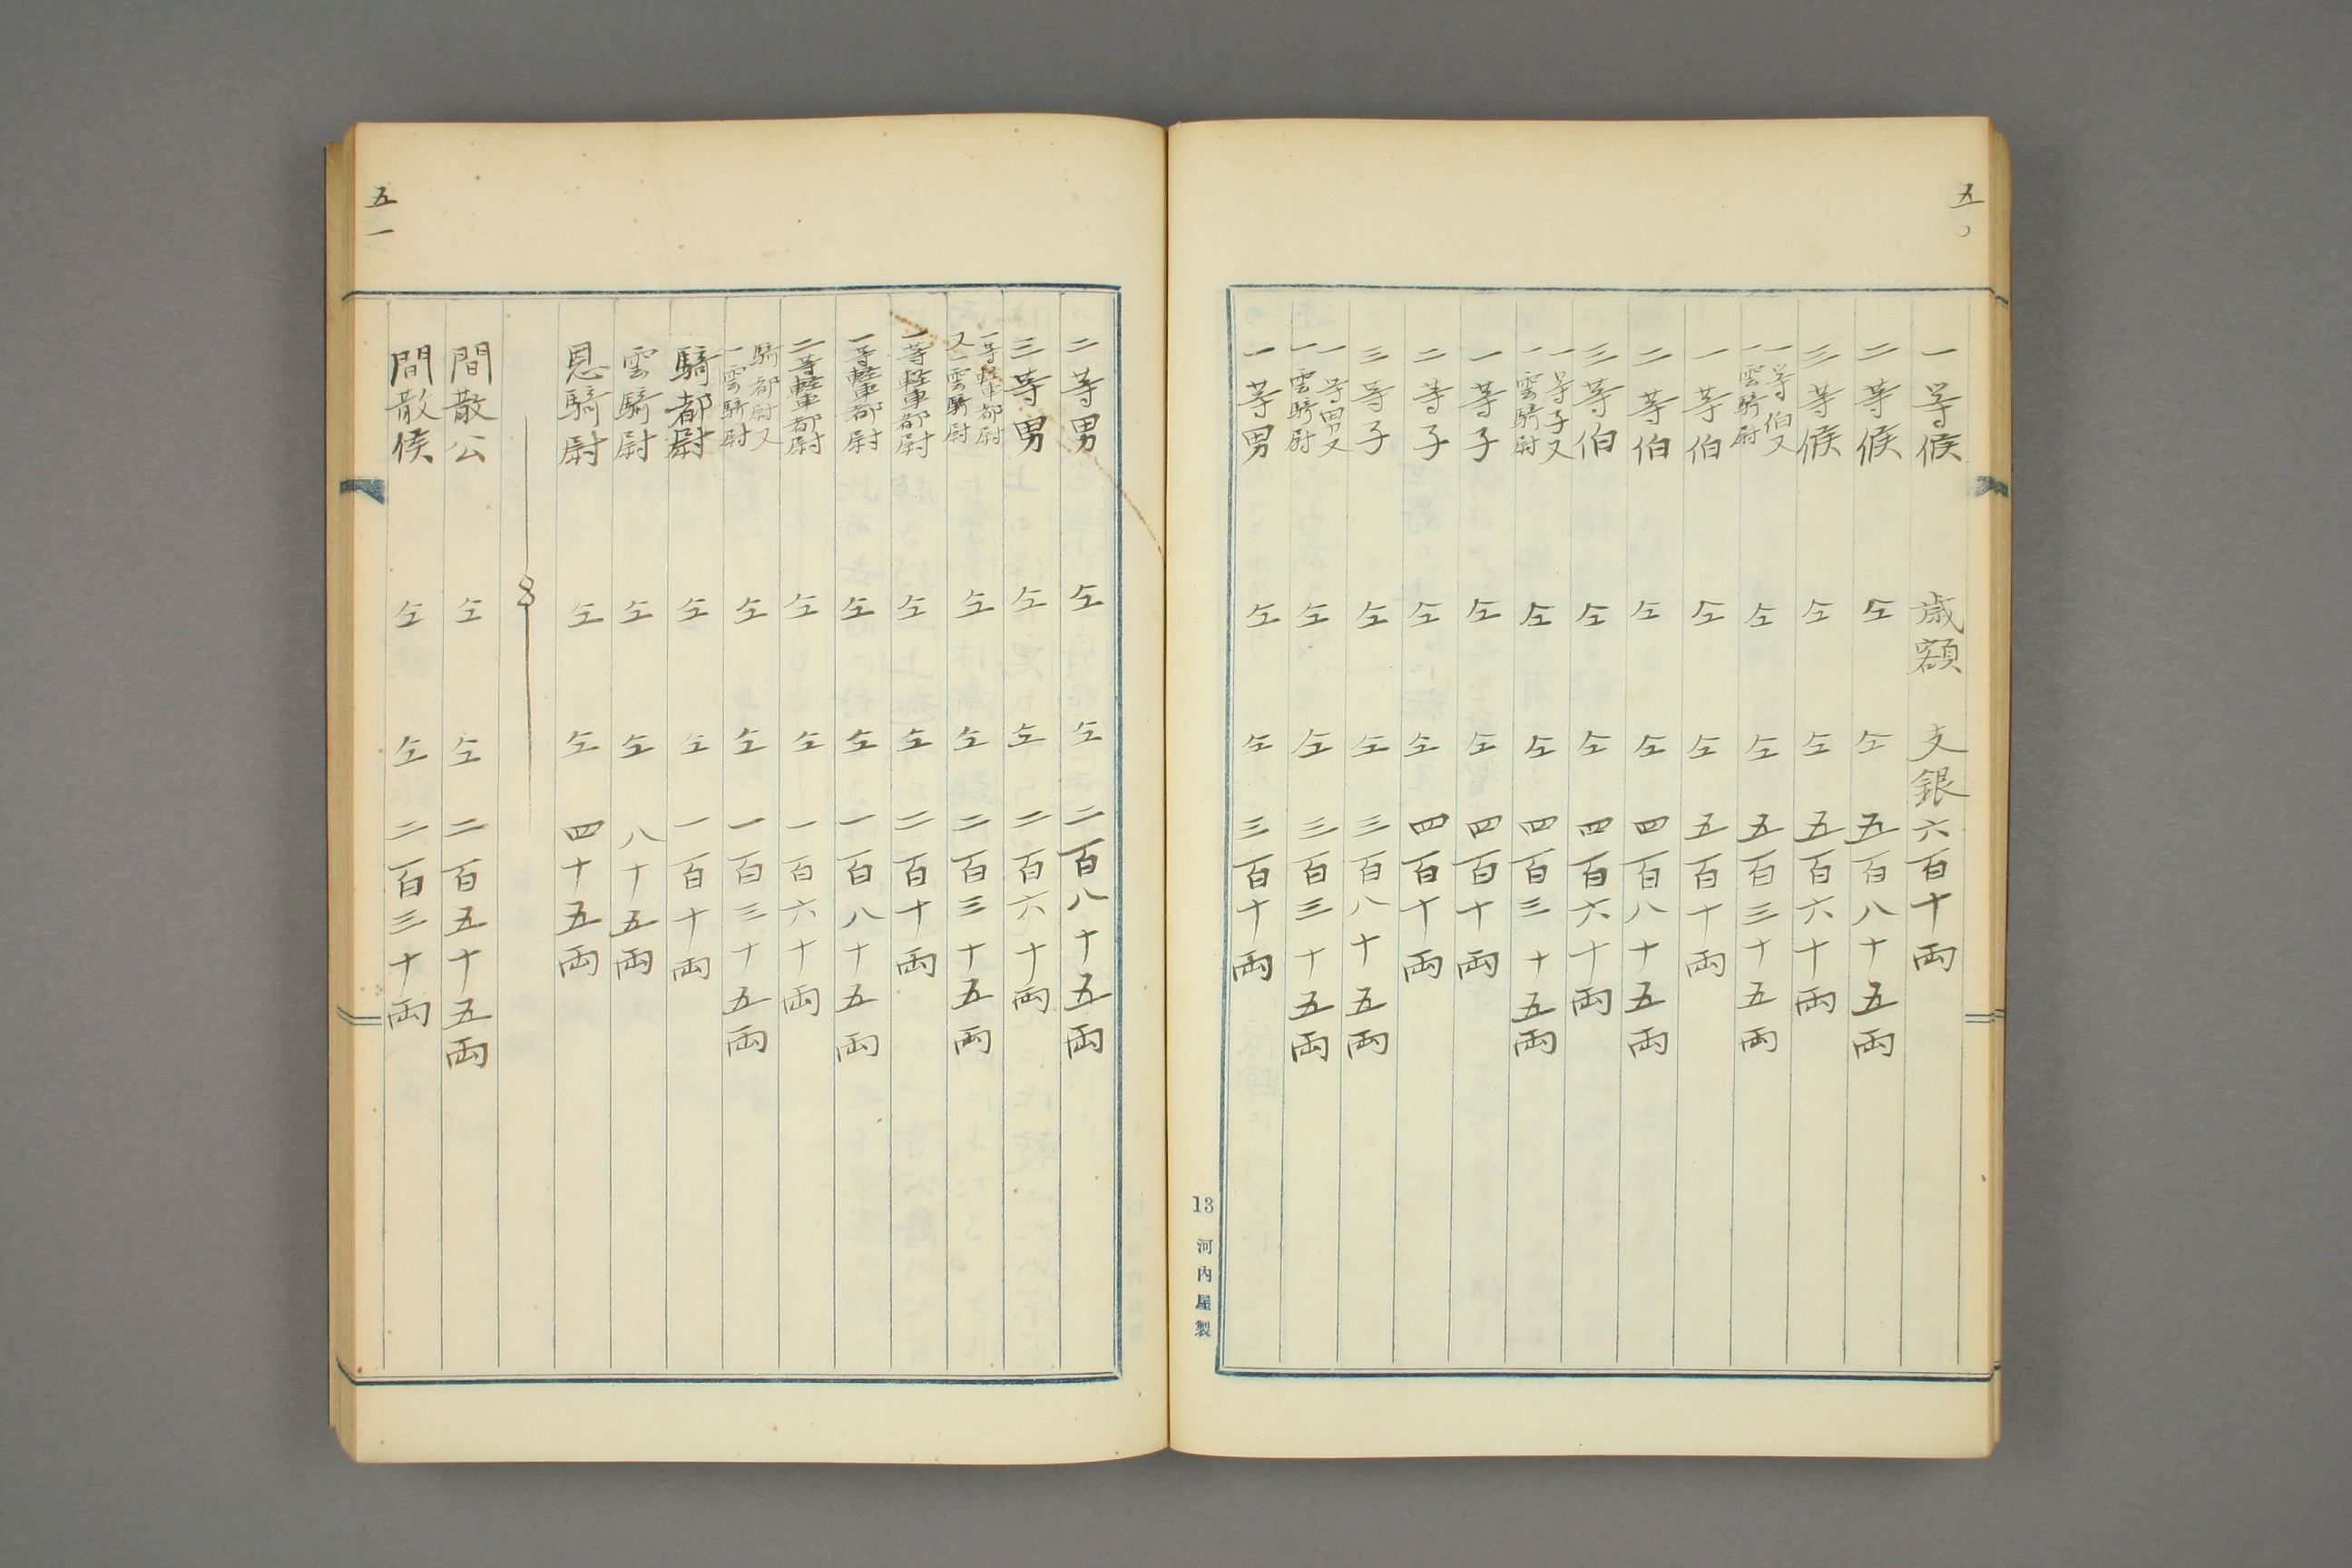 五〇
一等候 歳額 支銀六百十両
二等候 仝 仝 五百八十五両
三等候 仝 仝 五百六十両
一等伯又一雲騎尉 仝 仝 五百三十五両
一等伯 仝 仝 五百十両
二等伯 仝 仝 四百八十五両
三等伯 仝 仝 四百六十両
一等子又一雲騎尉 仝 仝 四百三十五両
一等子 仝 仝 四百十両
二等子 仝 仝 四百十両
三等子 仝 仝 三百八十五両
一等男又一雲騎尉 仝 仝 三百三十五両
一等男 仝 仝 三百十両
13 河内屋製
五一
二等男 仝 仝 二百八十五両
三等男 仝 仝 二百六十両
一等軽車都尉又一雲騎尉 仝 仝 二百三十五両
一等軽車都尉 仝 仝 二百十両
一等軽車都尉 仝 仝 一百八十五両
二等軽車都尉 仝 仝 一百六十両
騎都尉又一雲騎尉 仝 仝 一百三十五両
騎都尉 仝 仝 一百十両
雲騎尉 仝 仝 八十五両
恩騎尉 仝 仝 四十五両
間散公 仝 仝 二百五十五両
間散侯 仝 仝 二百三十両